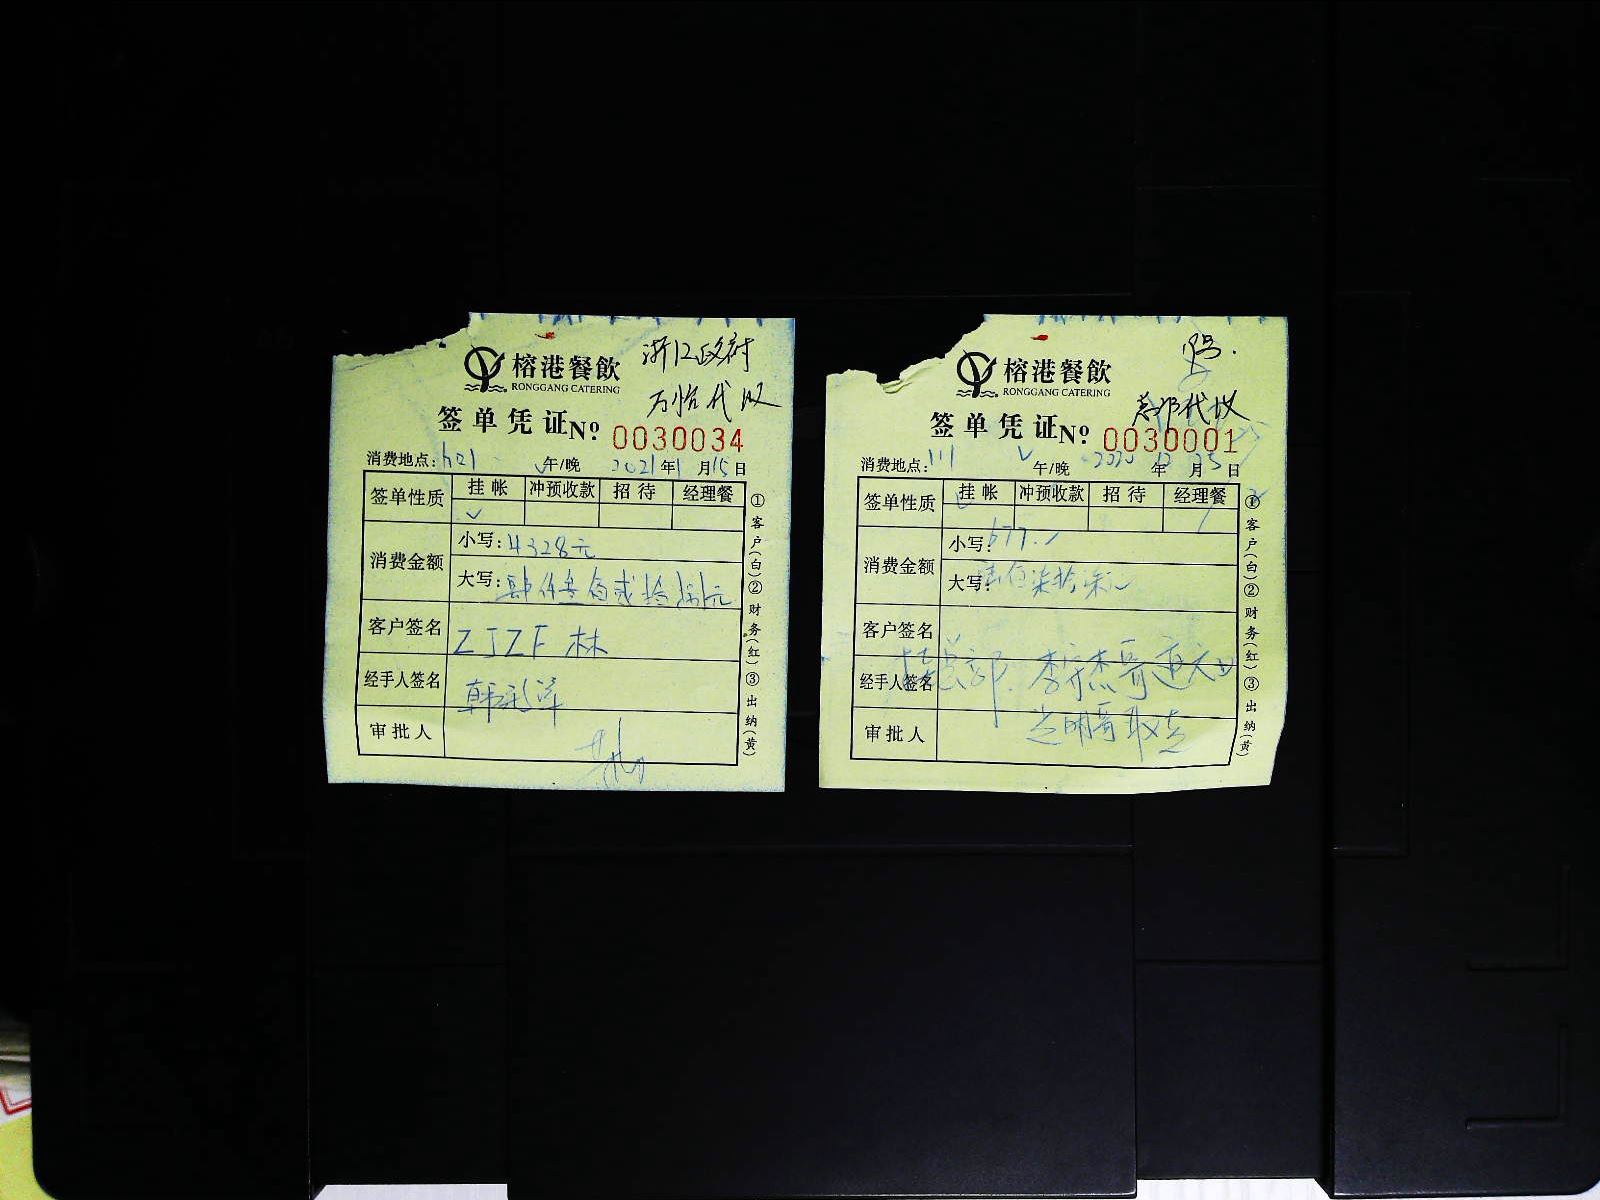 榕港餐飲
RONGGANG CATERING
浙江政府
万怡代收
签单凭证 Nº 0030034
消费地点: h21 午/晚 2021年1月15日
签单性质 挂帐 冲预收款 招待 经理餐
✓
消费金额 小写: 4328元
大写: 肆仟叁佰贰拾捌元
客户签名 ZJZF 林
经手人签名 韩
审批人
①客户(白)②财务(红)③出纳(黄)
榕港餐飲
RONGGANG CATERING
总部代收
签单凭证 Nº 0030001
消费地点: 111 午/晚 2020年12月25日
签单性质 挂帐 冲预收款 招待 经理餐
消费金额 小写: 677.
大写: 陆佰柒拾柒元
客户签名
经手人签名 总部. 李宗杰哥
审批人
①客户(白)②财务(红)③出纳(黄)